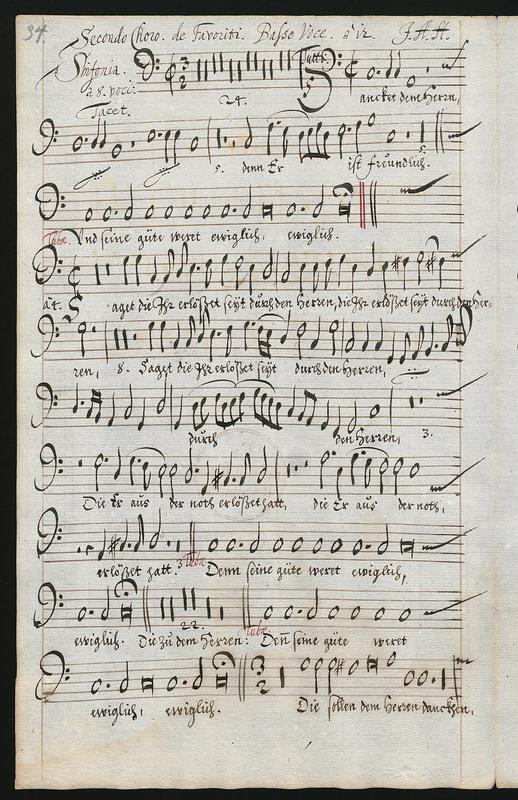 34. Secondo Choro. de Favoriti. Basso Voce. à 12. J. A. H.
Sinfonia. Tutti.
à 8. voci: 24. 5. ancket dem Herrn,
Tacet.
5. denn Er ist freundlich. 5.
Und seine güte weret ewiglich, ewiglich.
à 4. Saget die Ihr erlößet seyt durch den Herren, die Ihr erlößet seyt durch den Her-
ren, 8. Saget die Ihr erlößet seyt durch den Herren,
durch den Herren, 3.
Die Er aus der noth erlößet hatt, die Er aus der noth,
erlößet hatt. 3 Denn seine güte weret ewiglich,
ewiglich. Die zu dem Herren: 22. Deñ seine güte weret
ewiglich, ewiglich. Die sollen dem Herren dancken,